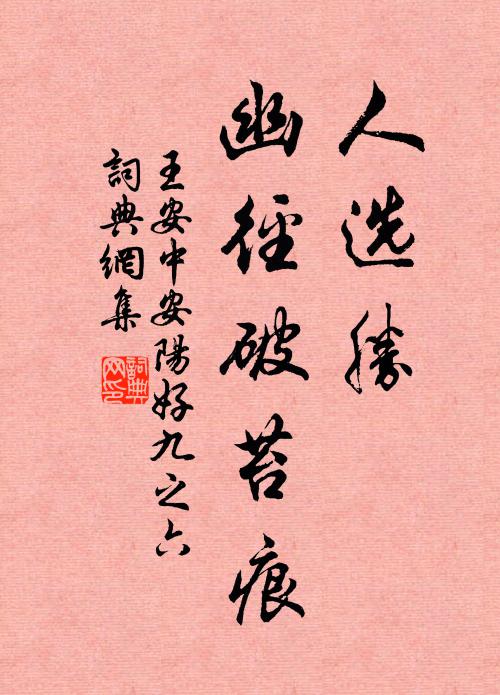 人选勝
幽徑破苔痕
王安中安陽好九之六
詞典網集
詞典
网印